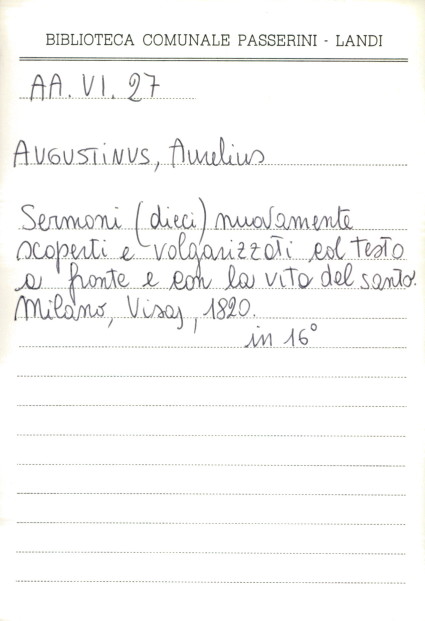 BIBLIOTECA COMUNALE PASSERINI - LANDI
AA. VI. 27
AUGUSTINUS, Aurelius
Sermoni (dieci) nuovamente
scoperti e volgarizzati col testo
a fronte e con la vita del santo.
Milano, Visaj, 1820.
in 16°